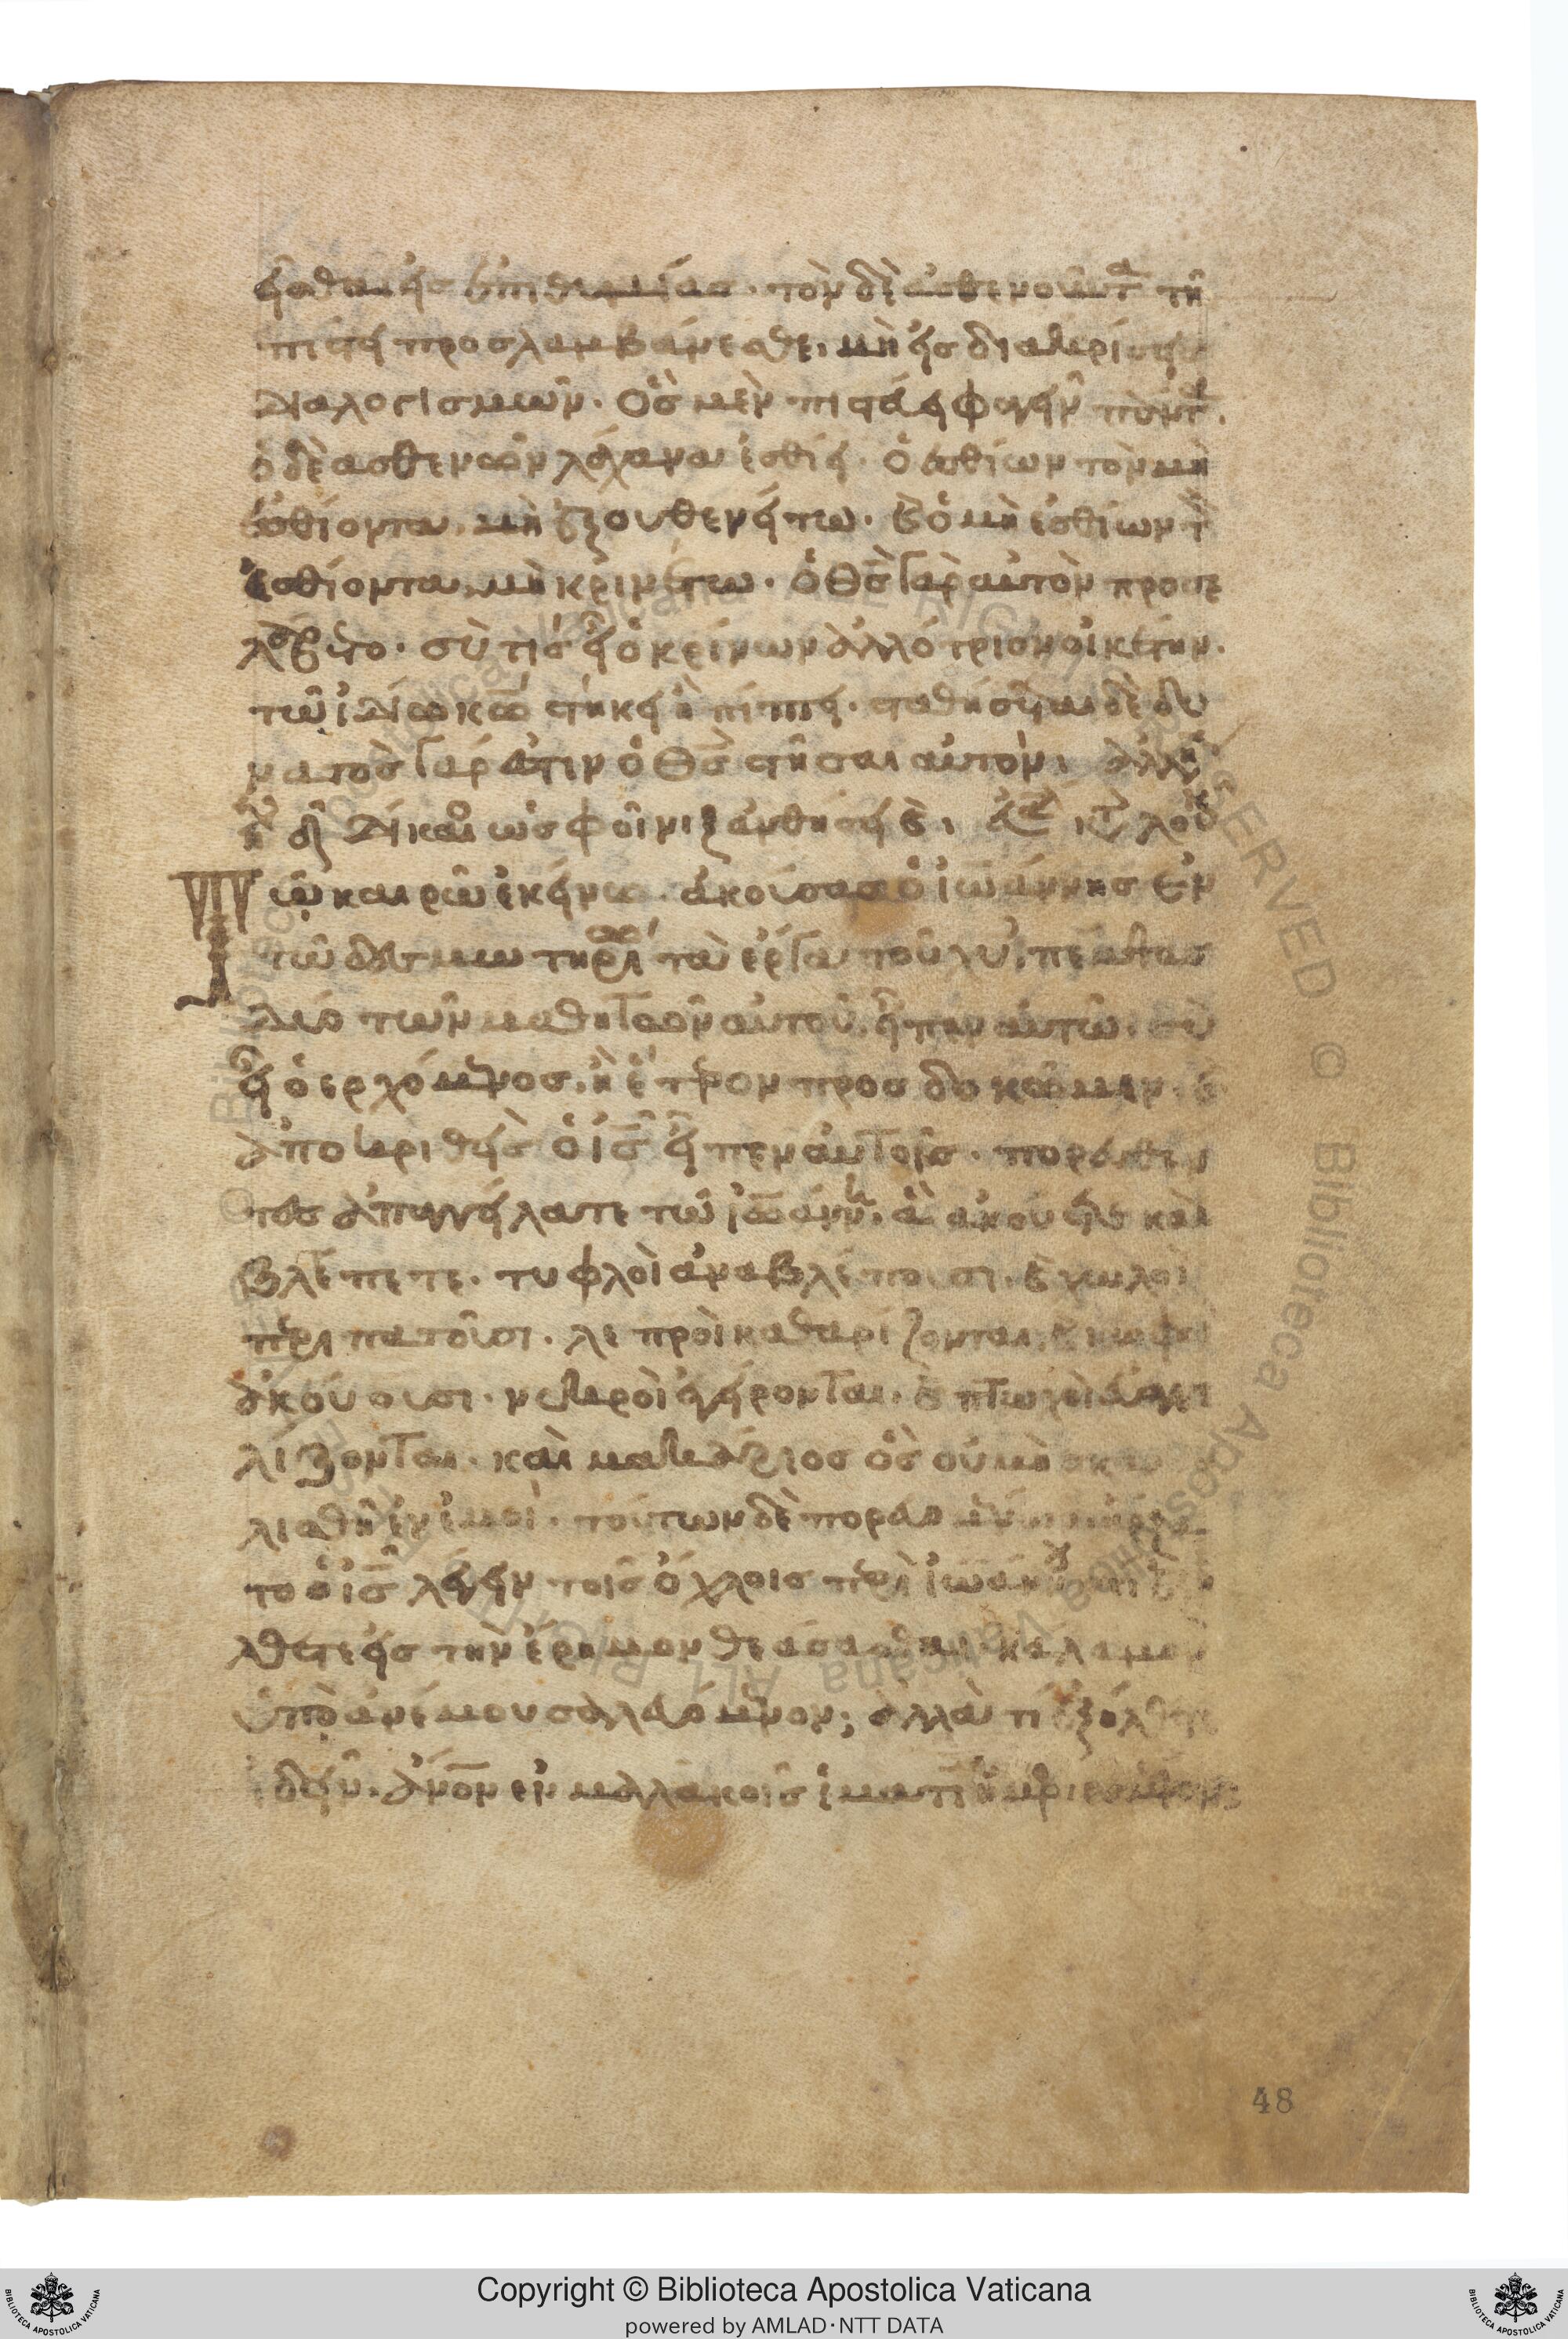 ἠσθαι εἰς ἐπιθυμίας. τὸν δὲ ἀσθενοῦντα τῆ
πίστει προσλαμβάνεσθε, μὴ εἰς διακρίσεις
διαλογισμῶν. ὃς μὲν πιστεύει φαγεῖν πάντα.
ὁ δὲ ασθενῶν λάχανα ἐσθίει. ὁ ἐσθίων τὸν μὴ
ἐσθίοντα, μὴ ἐξουθενείτω. καὶ ὁ μὴ ἐσθίων τὸν
ἐσθίοντα, μὴ κρινέτω. ὁ θς γὰρ αὐτὸν προσε
λάβετο. σὺ τίς εἶ ὁ κρίνων ἀλλότριον οἰκέτην.
τῶ ἰδίω κω στήκει ἢ πίπτει. σταθήσεται δὲ δυ
νατὸς γάρ ἐστιν ὁ θς στῆσαι αὐτόν.
δίκαιος ὡς φοῖνιξ ἀνθήσει
Τῶ καιρῶ ἐκείνω. ἀκούσας ὁ ἰωάννης ἐν
τῶ δεσμωτηρίω τὰ ἔργα τοῦ χυ, πέμψας
δύο τῶν μαθητῶν αὐτοῦ, εἶπεν αὐτῶ. σὺ
εἶ ὁ ερχόμενος, ἢ ἕτερον προσδοκῶμεν. καὶ
ἀποκριθεὶς ὁ ις εἶπεν αὐτοῖς. πορευθέν
τες ἀπαγγείλατε τῶ ἰωάννη, ἃ ἀκούετε καὶ
βλέπετε. τυφλοὶ ἀναβλέπουσι, καὶ χωλοὶ
περιπατοῦσι. λεπροὶ καθαρίζονται, καὶ κωφοὶ
ἀκούουσι. νεκροὶ ἐγείρονται. καὶ πτωχοὶ εὐαγγε
λίζονται. καὶ μακάριος ὃς οὐ μὴ σκανδα
λισθῆ ἐν ἐμοί. τούτων δὲ πορευομένων ἤρξα
το ὁ ις λέγειν τοῖς ὄχλοις περὶ ἰωάννου τί ἐξή
λθετε εἰς τὴν ἔρημον θεάσασθαι. κάλαμον
ὑπὸ ἀνέμου σαλευόμενον; ἀλλὰ τί ἐξήλθετε
ἰδεῖν. ἀνον ἐν μαλακοῖς ἱματίοις ἠμφιεσμένον;
48
Copyright © Biblioteca Apostolica Vaticana
powered by AMLAD·NTT DATA